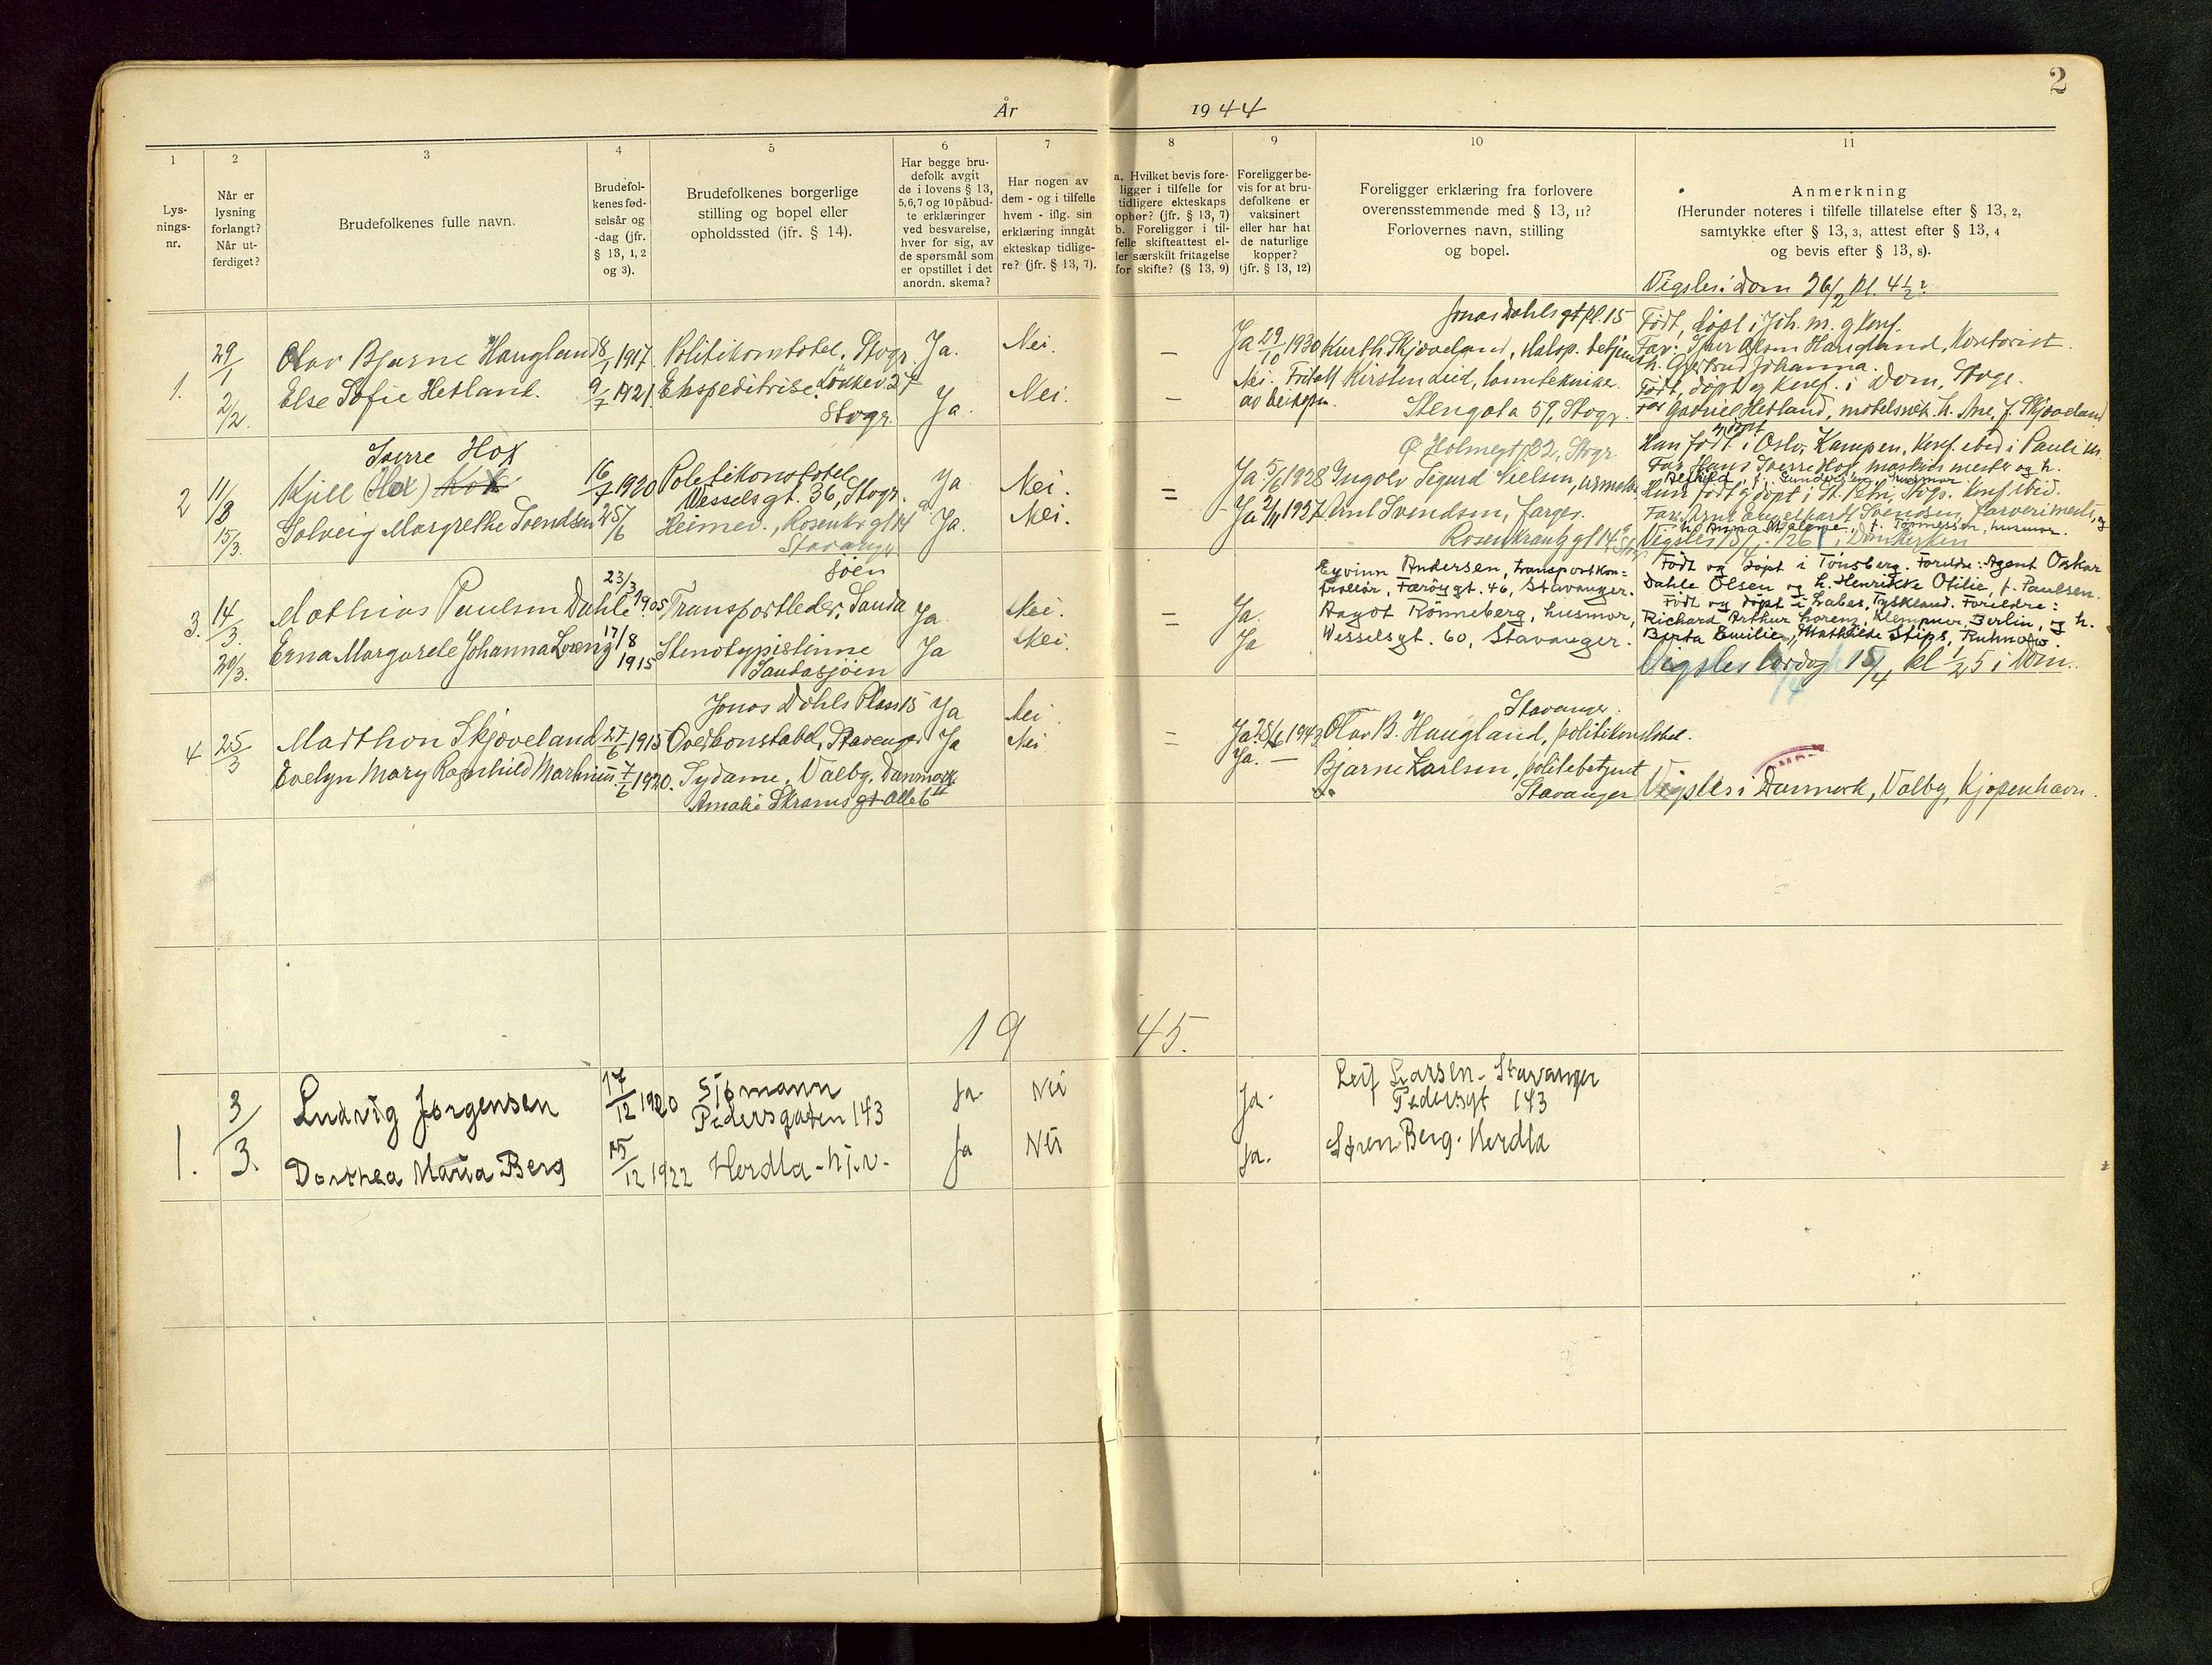 2
År
1944
1
2
3
4
5
6
7
8
9
10
11
Lys-
nings-
nr.
Når er
lysning
forlangt?
Når ut-
ferdiget?
Brudefolkenes fulle navn.
Brudefol-
kenes fød-
selsår og
-dag (jfr.
§ 13, 1, 2
og 3).
Brudefolkenes borgerlige
stilling og bopel eller
opholdssted (jfr. § 14).
Har begge bru-
defolk avgit
de i lovens § 13,
5,6,7 og 10 påbud-
te erklæringer
ved besvarelse,
hver for sig, av
de spørsmål som
er opstillet i det
anordn. skema?
Har nogen av
dem - og i tilfelle
hvem - iflg. sin
erklæring inngåt
ekteskap tidlige-
re? (jfr. § 13, 7).
a. Hvilket bevis fore-
ligger i tilfelle for
tidligere ekteskaps
ophør? (jfr. § 13, 7)
b. Foreligger i til-
felle skifteattest el-
ler særskilt fritagelse
for skifte? (§ 13, 9)
Foreligger be-
vis for at bru-
defolkene er
vaksinert
eller har hat
de naturlige
kopper?
(jfr. § 13, 12)
Foreligger erklæring fra forlovere
overensstemmende med § 13, 11?
Forlovernes navn, stilling
og bopel.
Anmerkning
(Herunder noteres i tilfelle tillatelse efter § 13, 2,
samtykke efter § 13, 3, attest efter § 13, 4
og bevis efter § 13, 8).
Vigsles i Dom 26/2 kl. 4½
1.
29/1
2/2.
Olav Bjarne Haugland
8/1 1917.
Politikonstabel, Stvgr.
Ja.
Nei.
Else Sofie Hetland.
9/7 1921.
Ekspeditrise. Løkkev 27
Stvgr.
Ja.
Nei.
–
–
Ja 29/10 1930
Nei.
Jonas Dahls gt pl. 15
Kurth. Skjæveland,
Kirsten Lied, tanntekniker.
Stengata 59, Stvgr.
Født, døpt i Joh. m. g Konf.
Far: Haugland, Kontorist
Gjertrud Johanna.
Født, døpt og Konf. i Dom, Stvgr.
Far Gabriel Hetland, f. Skjæveland
2
11/3
15/3.
Sverre Hox
Kjell (Hox) Kox
16/7 1920
Politikonstabel
Wessels gt. 36, Stvgr.
Ja
Nei.
Solveig Margrethe Svendsen
25/6
Heimev., Rosenkr. gt 14
Stavanger
Ja.
Nei.
=
Ja. 5/6 1928
Ja 2/11 1927.
Ø. Holmegt 32, Stvgr
Ingolv Sigurd Nielsen, urmaker
Arnt Svendsen, farger.
Rosenkrantz gt 14
Han født i Oslo, Kampen, Konf. ibid i Pauli m.
Far Hans Sverre Hox, maskinmester og h.
Hun født g døpt i St. Petri, Stvgr. Konf ibid.
Far: Arnt Engelhardt Svendsen, farverimester, og
h. Anna f. Tønnessen, husmor.
3.
14/3.
20/3.
Mathias Paulsen Dahle
23/3 1905
Transportleder, Sauda
sjøen
Ja
Nei.
Erna Margarete Johanna Lorenz
17/8
1915
Stenotypistinne
Saudasjøen
Ja
Nei.
=
Ja.
Ja
Eyvinn Andersen, transportkon=
trollør, Færøygt. 46, Stavanger.
Aagot Rönneberg, husmor,
Wesselsgt. 60, Stavanger.
Født og døpt i Tønsberg. Foreldre: Agent Oskar
Dahle Olsen og h. Henrikke Otilie, f. Paulsen.
Født og døpt i Labes, Tyskland. Foreldre:
Richard Arthur Lorenz, Klempner, Berlin, og h.
Berta Emilie, Mathilde Stips, Ruhnow.
Vigsles lørdag 15/4 kl ½5 i Dom.
4
25/3
Marthon Skjæveland
27/6 1915
Jonas Dahls Plass 15
Overkonstabel, Stavanger
Ja
Nei.
Evelyn Mary Ragnhild Martinius.
7/6 1920.
Sydame. Valby, Danmark
Amalie Skrams Alle 6
Ja
Nei.
=
Ja. 28/6 1943
Ja. –
Stavanger.
Olav B. Haugland, politikonstabel.
Bjarne Karlsen, politibetjent
Stavanger
Vigsles i Danmark, Valby, Kjøpenhavn.
19 45.
1.
3/3.
Ludvig Jørgensen
17/12 1920
Sjømann
Pedersgaten 143
Ja.
Nei
Dorthea Maria Berg
15/12 1922
Herdla - hj.v.
Ja
Nei
Ja.
Ja.
Leif Larsen - Stavanger
Pedersgt 143
Søren Berg. Herdla